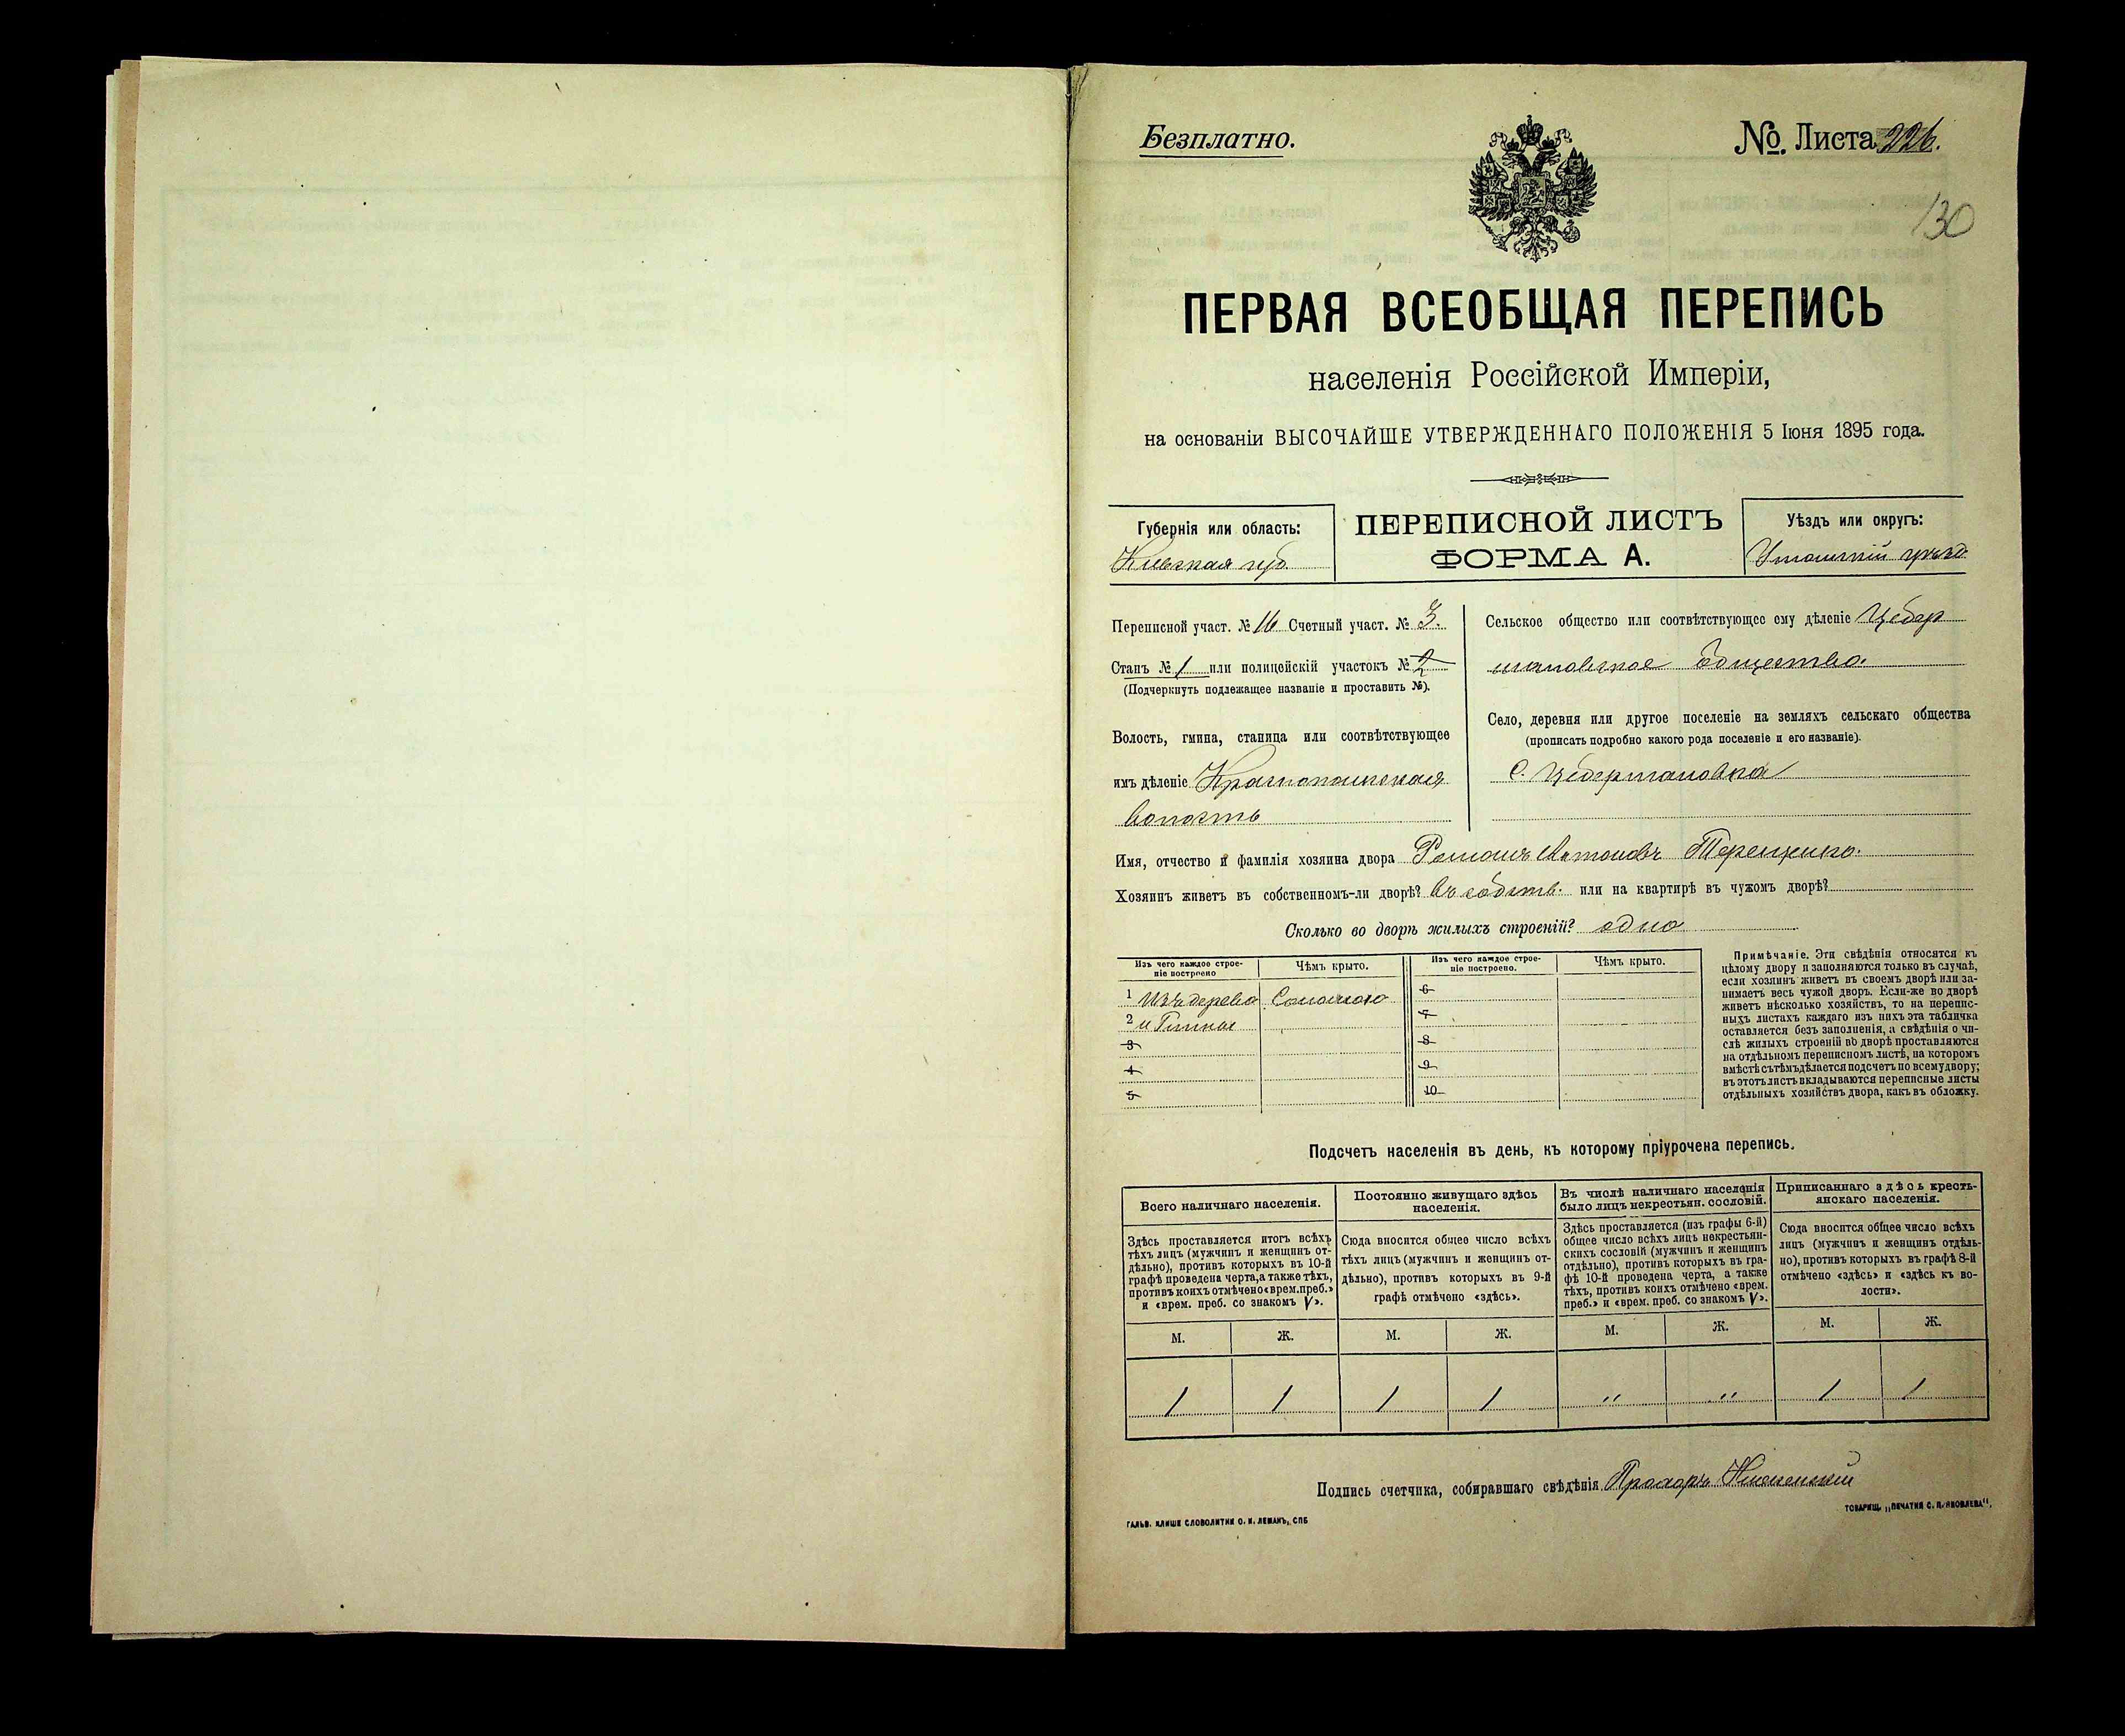 Безплатно.
№ Листа 226.
130
ПЕРВАЯ ВСЕОБЩАЯ ПЕРЕПИСЬ
населенія Россійской Имперіи,
на основаніи ВЫСОЧАЙШЕ УТВЕРЖДЕННАГО ПОЛОЖЕНІЯ 5 Іюня 1895 года.
Губернія или область:
Кіевская губ.
ПЕРЕПИСНОЙ ЛИСТЪ
ФОРМА А.
Уѣздъ или округъ:
Уманскій уѣздъ
Переписной участ. № 16 Счетный участ. № 3.
Станъ № 1 или полицейскій участокъ № 2
(Подчеркнуть подлежащее названіе и проставить №).
Волость, гмина, станица или соотвѣтствующее
имъ дѣленіе Краснопольская
волость
Сельское общество или соотвѣтствующее ему дѣленіе Цебер
мановское общество.
Село, деревня или другое поселеніе на земляхъ сельскаго общества
(прописать подробно какого рода поселеніе и его названіе).
С. Цебермановка
Имя, отчество и фамилія хозяина двора Романъ Антоновъ Терещенко.
Хозяинъ живетъ въ собственномъ-ли дворѣ? въ собств. или на квартирѣ въ чужомъ дворѣ?
Сколько во дворѣ жилыхъ строеній? одно
Изъ чего каждое строе-
ніе построено
Чѣмъ крыто.
Изъ чего каждое строе-
ніе построено.
Чѣмъ крыто.
1 Изъ дерева Соломою
2 и Глины
3
4
5
6
7
8
9
10
Примѣчаніе. Эти свѣдѣнія относятся къ
цѣлому двору и заполняются только въ случаѣ,
если хозяинъ живетъ въ своемъ дворѣ или за-
нимаетъ весь чужой дворъ. Если-же во дворѣ
живетъ нѣсколько хозяйствъ, то на перепис-
ныхъ листахъ каждаго изъ нихъ эта табличка
оставляется безъ заполненія, а свѣдѣнія о чи-
слѣ жилыхъ строеній во дворѣ проставляются
на отдѣльномъ переписномъ листѣ, на которомъ
вмѣстѣ съ тѣмъ дѣлается подсчетъ по всему двору;
въ этотъ листъ вкладываются переписные листы
отдѣльныхъ хозяйствъ двора, какъ въ обложку.
Подсчетъ населенія въ день, къ которому пріурочена перепись.
Всего наличнаго населенія.
Здѣсь проставляется итогъ всѣхъ
тѣхъ лицъ (мужчинъ и женщинъ от-
дѣльно), противъ которыхъ въ 10-й
графѣ проведена черта, а также тѣхъ,
противъ коихъ отмѣчено «врем. преб.»
и «врем. преб. со знакомъ V».
Постоянно живущаго здѣсь
населенія.
Сюда вносится общее число всѣхъ
тѣхъ лицъ (мужчинъ и женщинъ от-
дѣльно), противъ которыхъ въ 9-й
графѣ отмѣчено «здѣсь».
Въ числѣ наличнаго населенія
было лицъ некрестьян. сословій.
Здѣсь проставляется (изъ графы 6-й)
общее число всѣхъ лицъ некрестьян-
скихъ сословій (мужчинъ и женщинъ
отдѣльно), противъ которыхъ въ гра-
фѣ 10-й проведена черта, а также
тѣхъ, противъ коихъ отмѣчено «врем.
преб.» и «врем. преб. со знакомъ V».
Приписаннаго здѣсь кресть-
янскаго населенія.
Сюда вносится общее число всѣхъ
лицъ (мужчинъ и женщинъ отдѣль-
но), противъ которыхъ въ графѣ 8-й
отмѣчено «здѣсь» и «здѣсь къ во-
лости».
М. Ж. М. Ж. М. Ж. М. Ж.
1 1 1 1 " " 1 1
Подпись счетчика, собиравшаго свѣдѣнія
ГАЛЬВ. КЛИШЕ СЛОВОЛИТНИ О. И. ЛЕМАНЪ, СПБ
ТОВАРИЩ. „ПЕЧАТНЯ С. П. ЯКОВЛЕВА“.